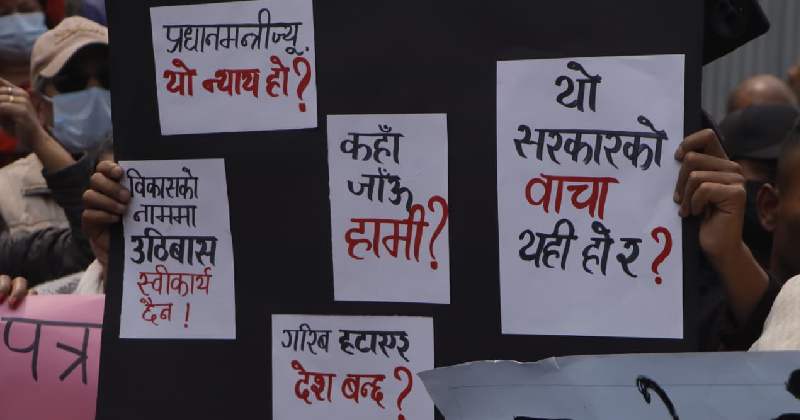 प्रधानमन्त्रीज्यू,
यो न्याय हो?
विकासको
नाममा
उठिबास
स्वीकार्य
छैन !
कहाँ
जाँऊ
हामी?
यो
सरकारको
वाचा
यही हो र ?
गरिब हटाएर
देश बन्छ ?
पत्र